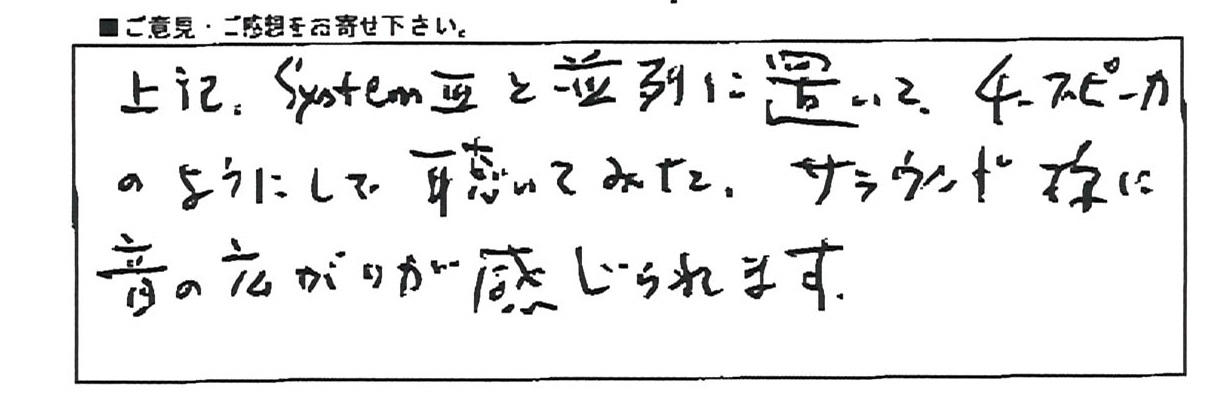 ■ご意見・ご感想をお寄せ下さい。
上記、System Ⅲと並列に置いて、4-スピーカ
のようにして聴いてみた、サラウンド様に
音の広がりが感じられます.